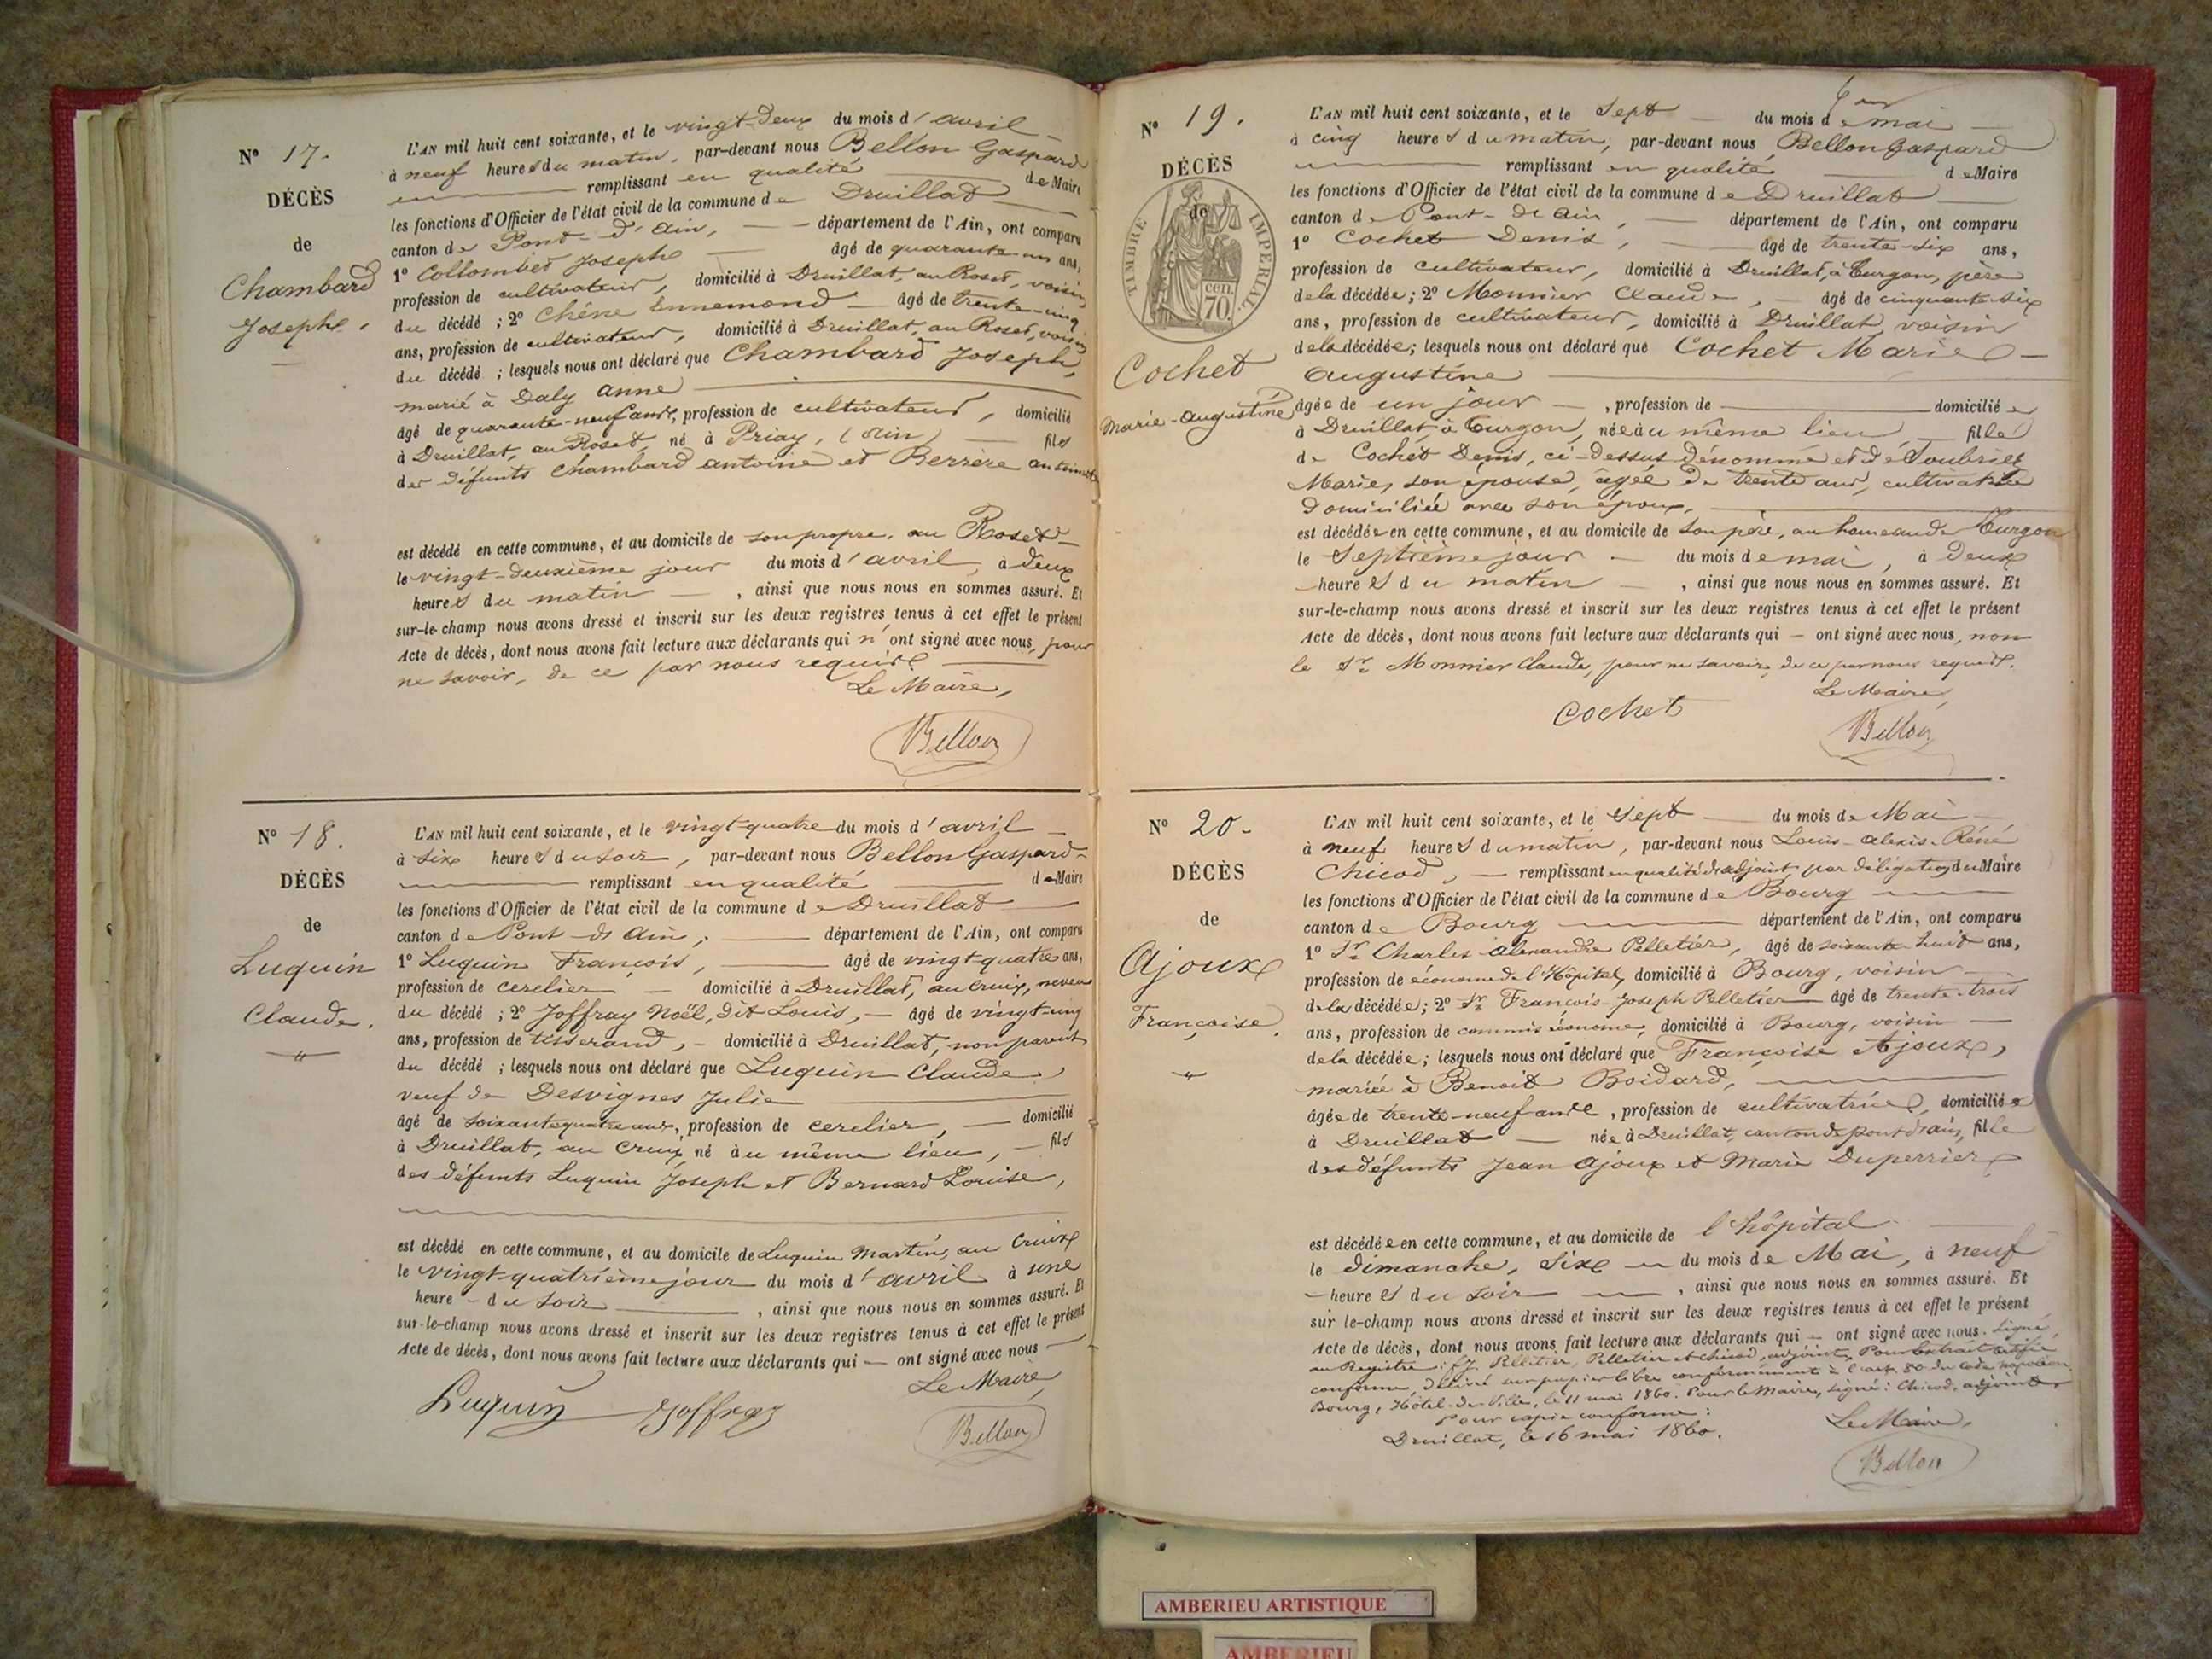 N° 17.
DÉCÈS
de
Chambard
Joseph.
L'AN mil huit cent soixante, et le vingt-deux du mois d'avril
à neuf heures du matin, par-devant nous Bellon Gaspard
remplissant en qualité de Maire
les fonctions d'Officier de l'état civil de la commune de Druillat
canton de Pont-d'Ain, département de l'Ain, ont comparu
1° Collombet Joseph âgé de quarante un ans,
profession de cultivateur, domicilié à Druillat, au Roset, voisin
du décédé ; 2° Chêne Ennemond âgé de trente-cinq
ans, profession de cultivateur, domicilié à Druillat, au Roset, voisin
du décédé ; lesquels nous ont déclaré que Chambard Joseph,
marié à Daly Anne
âgé de quarante-neuf ans, profession de cultivateur, domicilié
à Druillat, au Roset, né à Priay, (Ain) fils
des défunts Chambard Antoine et Berrère Antoinette
est décédé en cette commune, et au domicile de son propre, au Roset
le vingt-deuxième jour du mois d'avril, à deux
heures du matin, ainsi que nous nous en sommes assuré. Et
sur-le-champ nous avons dressé et inscrit sur les deux registres tenus à cet effet le présent
Acte de décès, dont nous avons fait lecture aux déclarants qui n'ont signé avec nous, pour
ne savoir, de ce par nous requis.
Le Maire,
Bellon
N° 18.
DÉCÈS
de
Luquin
Claude.
L'AN mil huit cent soixante, et le vingt-quatre du mois d'avril
à six heures du soir, par-devant nous Bellon Gaspard
remplissant en qualité de Maire
les fonctions d'Officier de l'état civil de la commune de Druillat
canton de Pont-d'Ain, département de l'Ain, ont comparu
1° Luquin François, âgé de vingt-quatre ans,
profession de cerclier domicilié à Druillat, au Cruix, neveu
du décédé ; 2° Joffray Noël, dit Louis, âgé de vingt-cinq
ans, profession de tisserand, domicilié à Druillat, non parent
du décédé ; lesquels nous ont déclaré que Luquin Claude,
veuf de Desvignes Julie
âgé de soixante quatre ans, profession de cerclier, domicilié
à Druillat, au Cruix, né au même lieu, fils
des défunts Luquin Joseph et Bernard Louise,
est décédé en cette commune, et au domicile de Luquin Martin, au Cruix
le vingt-quatrième jour du mois d'avril à une
heure du soir, ainsi que nous nous en sommes assuré. Et
sur-le-champ nous avons dressé et inscrit sur les deux registres tenus à cet effet le présent
Acte de décès, dont nous avons fait lecture aux déclarants qui ont signé avec nous
Le Maire,
Luquin Joffray
Bellon
N° 19.
DÉCÈS
de
TIMBRE IMPÉRIAL
70 cen.
Cochet
Marie-Augustine
L'AN mil huit cent soixante, et le sept du mois de mai
à cinq heures du matin, par-devant nous Bellon Gaspard
remplissant en qualité de Maire
les fonctions d'Officier de l'état civil de la commune de Druillat
canton de Pont-d'Ain département de l'Ain, ont comparu
1° Cochet Denis, âgé de trente-six ans,
profession de cultivateur, domicilié à Druillat, à Turgon, père
de la décédée ; 2° Monnier Claude, âgé de cinquante-six
ans, profession de cultivateur, domicilié à Druillat, voisin
de la décédée ; lesquels nous ont déclaré que Cochet Marie
Augustine
âgée de un jour, profession de domiciliée
à Druillat à Turgon, née au même lieu, fille
de Cochet Denis, ci-dessus dénommé et de Soubriet
Marie, son épouse, âgée de trente ans, cultivatrice
domiciliée avec son époux.
est décédée en cette commune, et au domicile de son père, au hameau de Turgon
le septième jour du mois de mai, à deux
heures du matin, ainsi que nous nous en sommes assuré. Et
sur-le-champ nous avons dressé et inscrit sur les deux registres tenus à cet effet le présent
Acte de décès, dont nous avons fait lecture aux déclarants qui ont signé avec nous, non
le Sr. Monnier Claude, pour ne savoir, de ce par nous requis.
Le Maire,
Cochet
Bellon
N° 20.
DÉCÈS
de
Ajoux
Françoise.
L'AN mil huit cent soixante, et le sept du mois de Mai
à neuf heures du matin, par-devant nous Louis-Alexis-Réné
Chicod, remplissant en qualité d'adjoint par délégation du Maire
les fonctions d'Officier de l'état civil de la commune de Bourg
canton de Bourg département de l'Ain, ont comparu
1° Sr. Charles Alexandre Pelletier, âgé de soixante huit ans,
profession de économe de l'Hôpital, domicilié à Bourg, voisin
de la décédée ; 2° Sr. François-Joseph Pelletier âgé de trente-trois
ans, profession de commis économe, domicilié à Bourg, voisin
de la décédée ; lesquels nous ont déclaré que Françoise Ajoux,
mariée à Benoit Boidard,
âgée de trente-neuf ans, profession de cultivatrice, domiciliée
à Druillat née à Druillat, canton de Pont-d'Ain, fille
des défunts Jean Ajoux et Marie Duperrier
est décédée en cette commune, et au domicile de l'hôpital
le dimanche, six du mois de Mai, à neuf
heures du soir, ainsi que nous nous en sommes assuré. Et
sur le-champ nous avons dressé et inscrit sur les deux registres tenus à cet effet le présent
Acte de décès, dont nous avons fait lecture aux déclarants qui ont signé avec nous. Signé
au Registre : f.j. Pelletier, Pelletier et Chicod, adjoint. Pour Extrait certifié
conforme, délivré sur papier libre conformément à l'art. 80 du Code Napoléon
Bourg, Hôtel-de-Ville, le 11 mai 1860. Pour le Maire, signé : Chicod, adjoint.
Pour copie conforme :
Druillat, le 16 mai 1860.
Le Maire,
Bellon
AMBERIEU ARTISTIQUE
AMBERIEU